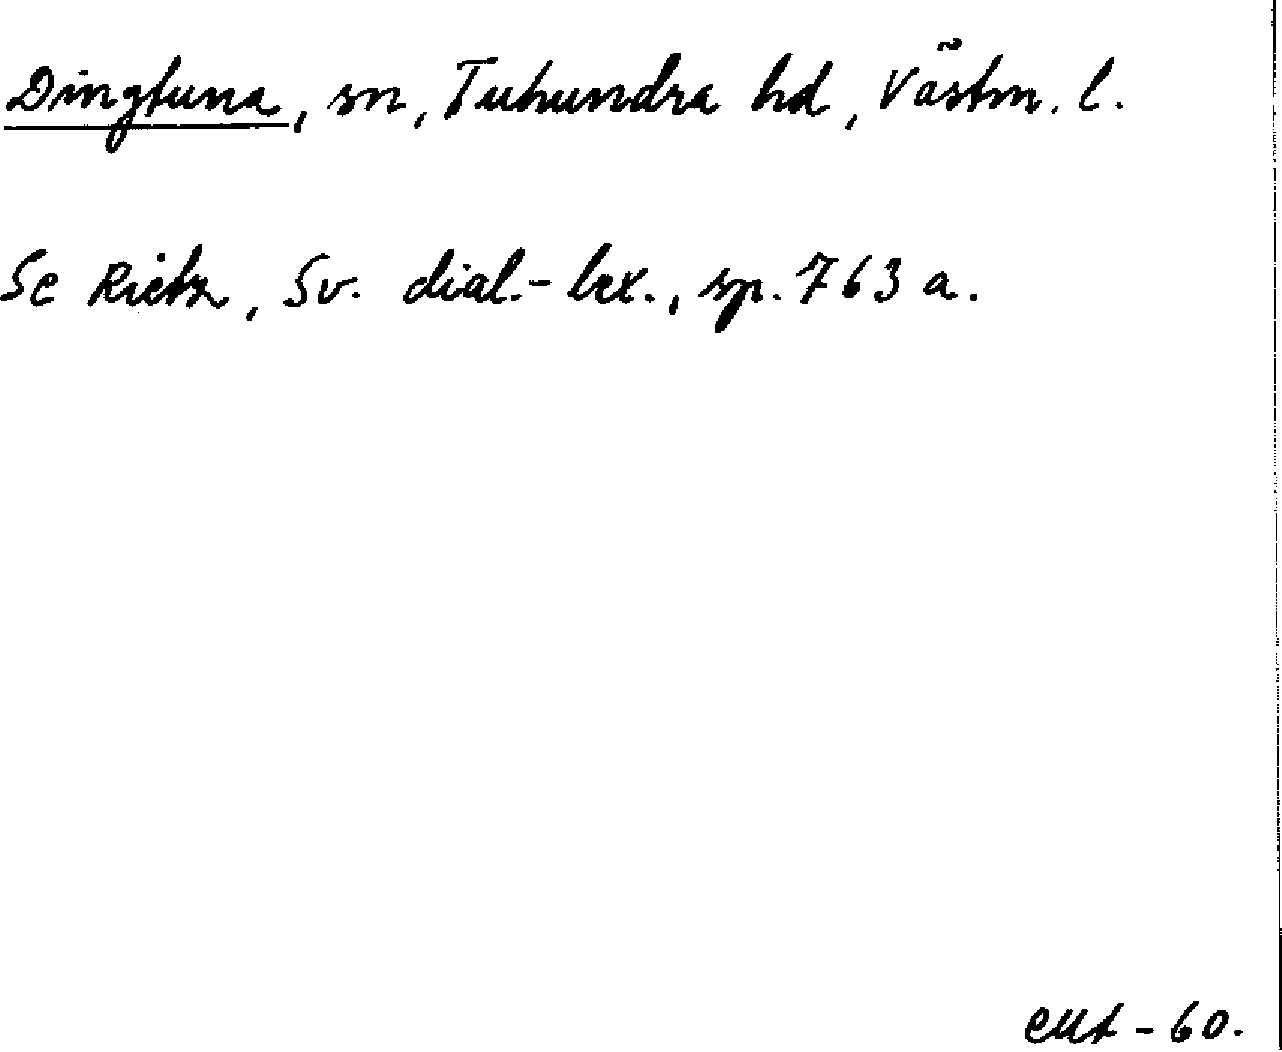 Dingtuna, sn, Tuhundra hd, Västm. l.
Se Rietz, Sv. dial.-lex., sp. 763 a.
-60.